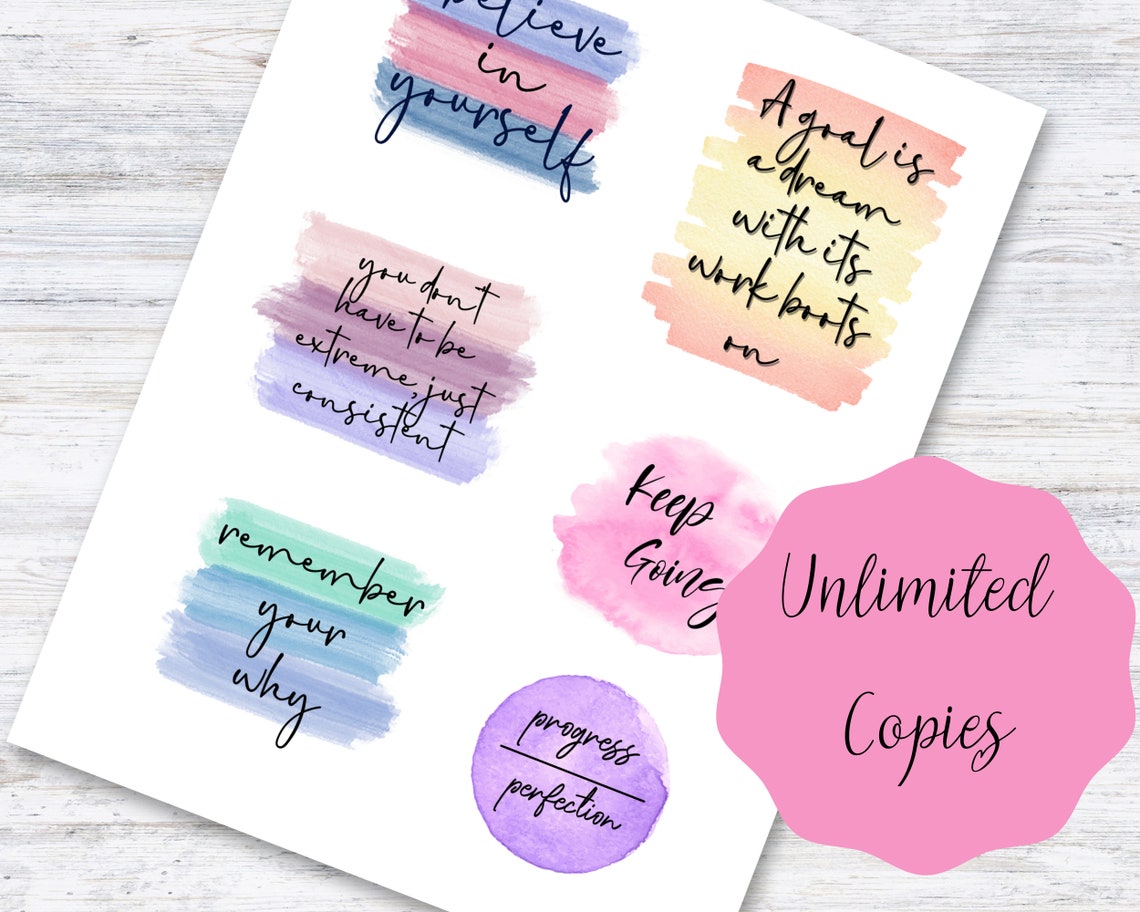 believe
in
yourself
A goal is
a dream
with its
work boots
on
you don't
have to be
extreme, just
consistent
Keep
Going
remember
your
why
progress
perfection
Unlimited
Copies